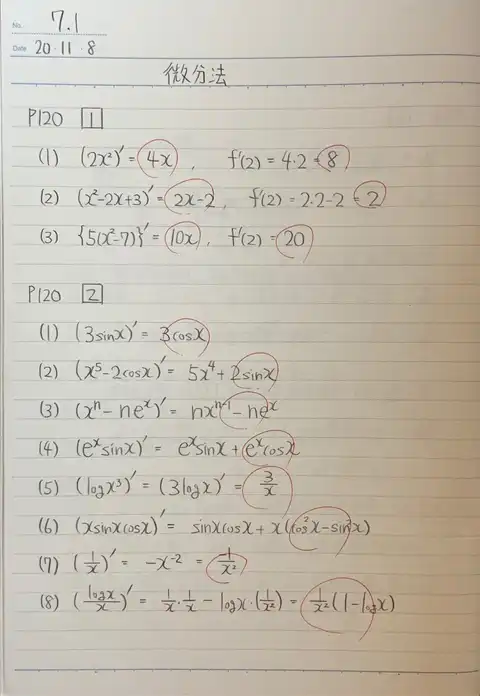 No. 7.1
Date 20・11・8
微分法
P120 1
(1) (2x²)′ = 4x , f′(2) = 4・2 = 8
(2) (x²-2x+3)′ = 2x-2 , f′(2) = 2・2-2 = 2
(3) {5(x²-7)}′ = 10x , f′(2) = 20
P120 2
(1) (3sinx)′ = 3cosx
(2) (x⁵-2cosx)′ = 5x⁴+2sinx
(3) (xⁿ-neˣ)′ = nxⁿ⁻¹-neˣ
(4) (eˣsinx)′ = eˣsinx+eˣcosx
(5) (logx³)′ = (3logx)′ = 3/x
(6) (xsinxcosx)′ = sinxcosx + x(cos²x-sin²x)
(7) (1/x)′ = -x⁻² = -1/x²
(8) (logx/x)′ = 1/x・1/x - logx・(1/x²) = 1/x²(1-logx)